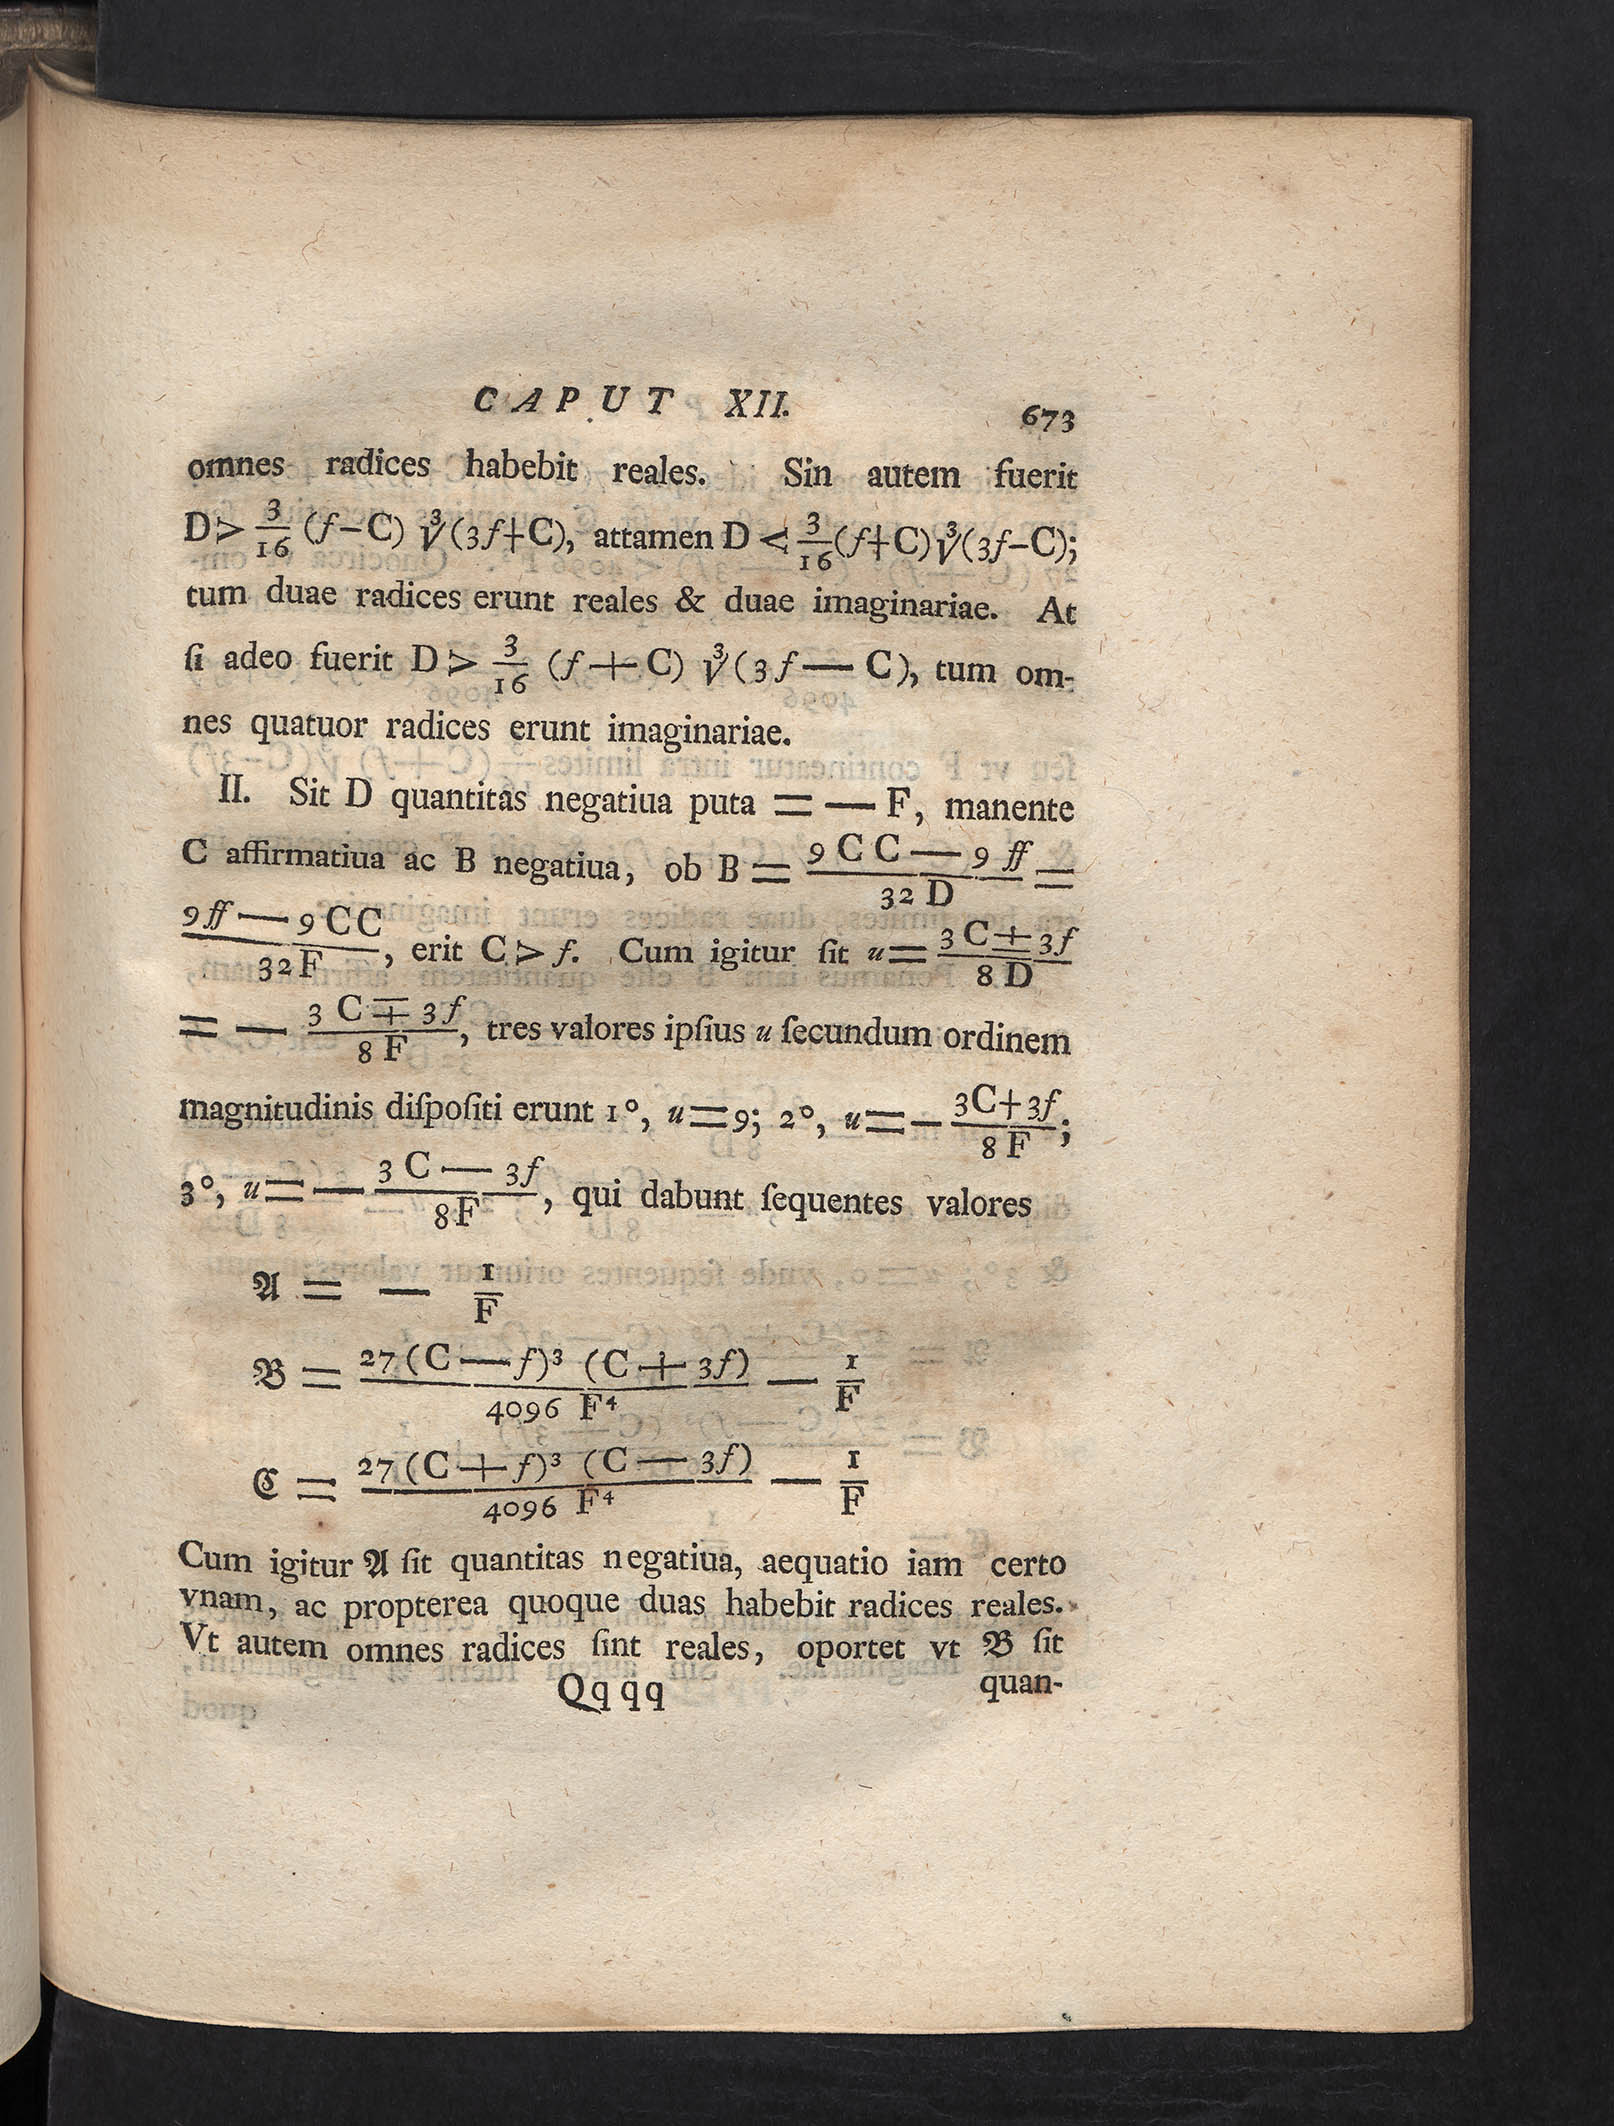 CAPUT XII. 673
omnes radices habebit reales. Sin autem fuerit
D > 3/16 (f − C) ∛(3f + C), attamen D < 3/16 (f + C) ∛(3f − C);
tum duae radices erunt reales & duae imaginariae. At
ſi adeo fuerit D > 3/16 (f + C) ∛(3f — C), tum om-
nes quatuor radices erunt imaginariae.
II. Sit D quantitas negatiua puta = — F, manente
C affirmatiua ac B negatiua, ob B = (9 C C — 9 ff)/(32 D) =
(9 ff — 9 C C)/(32 F), erit C > f. Cum igitur ſit u = (3 C ± 3 f)/(8 D)
= — (3 C ∓ 3 f)/(8 F), tres valores ipſius u ſecundum ordinem
magnitudinis diſpoſiti erunt 1°, u = 9; 2°, u = − (3C + 3f)/(8 F);
3°, u = — (3 C — 3f)/(8F), qui dabunt ſequentes valores
𝔄 = — 1/F
𝔅 = (27 (C — f)³ (C + 3f))/(4096 F⁴) — 1/F
ℭ = (27 (C + f)³ (C — 3f))/(4096 F⁴) — 1/F
Cum igitur 𝔄 ſit quantitas negatiua, aequatio iam certo
vnam, ac propterea quoque duas habebit radices reales.
Vt autem omnes radices ſint reales, oportet vt 𝔅 ſit
Qqqq quan-